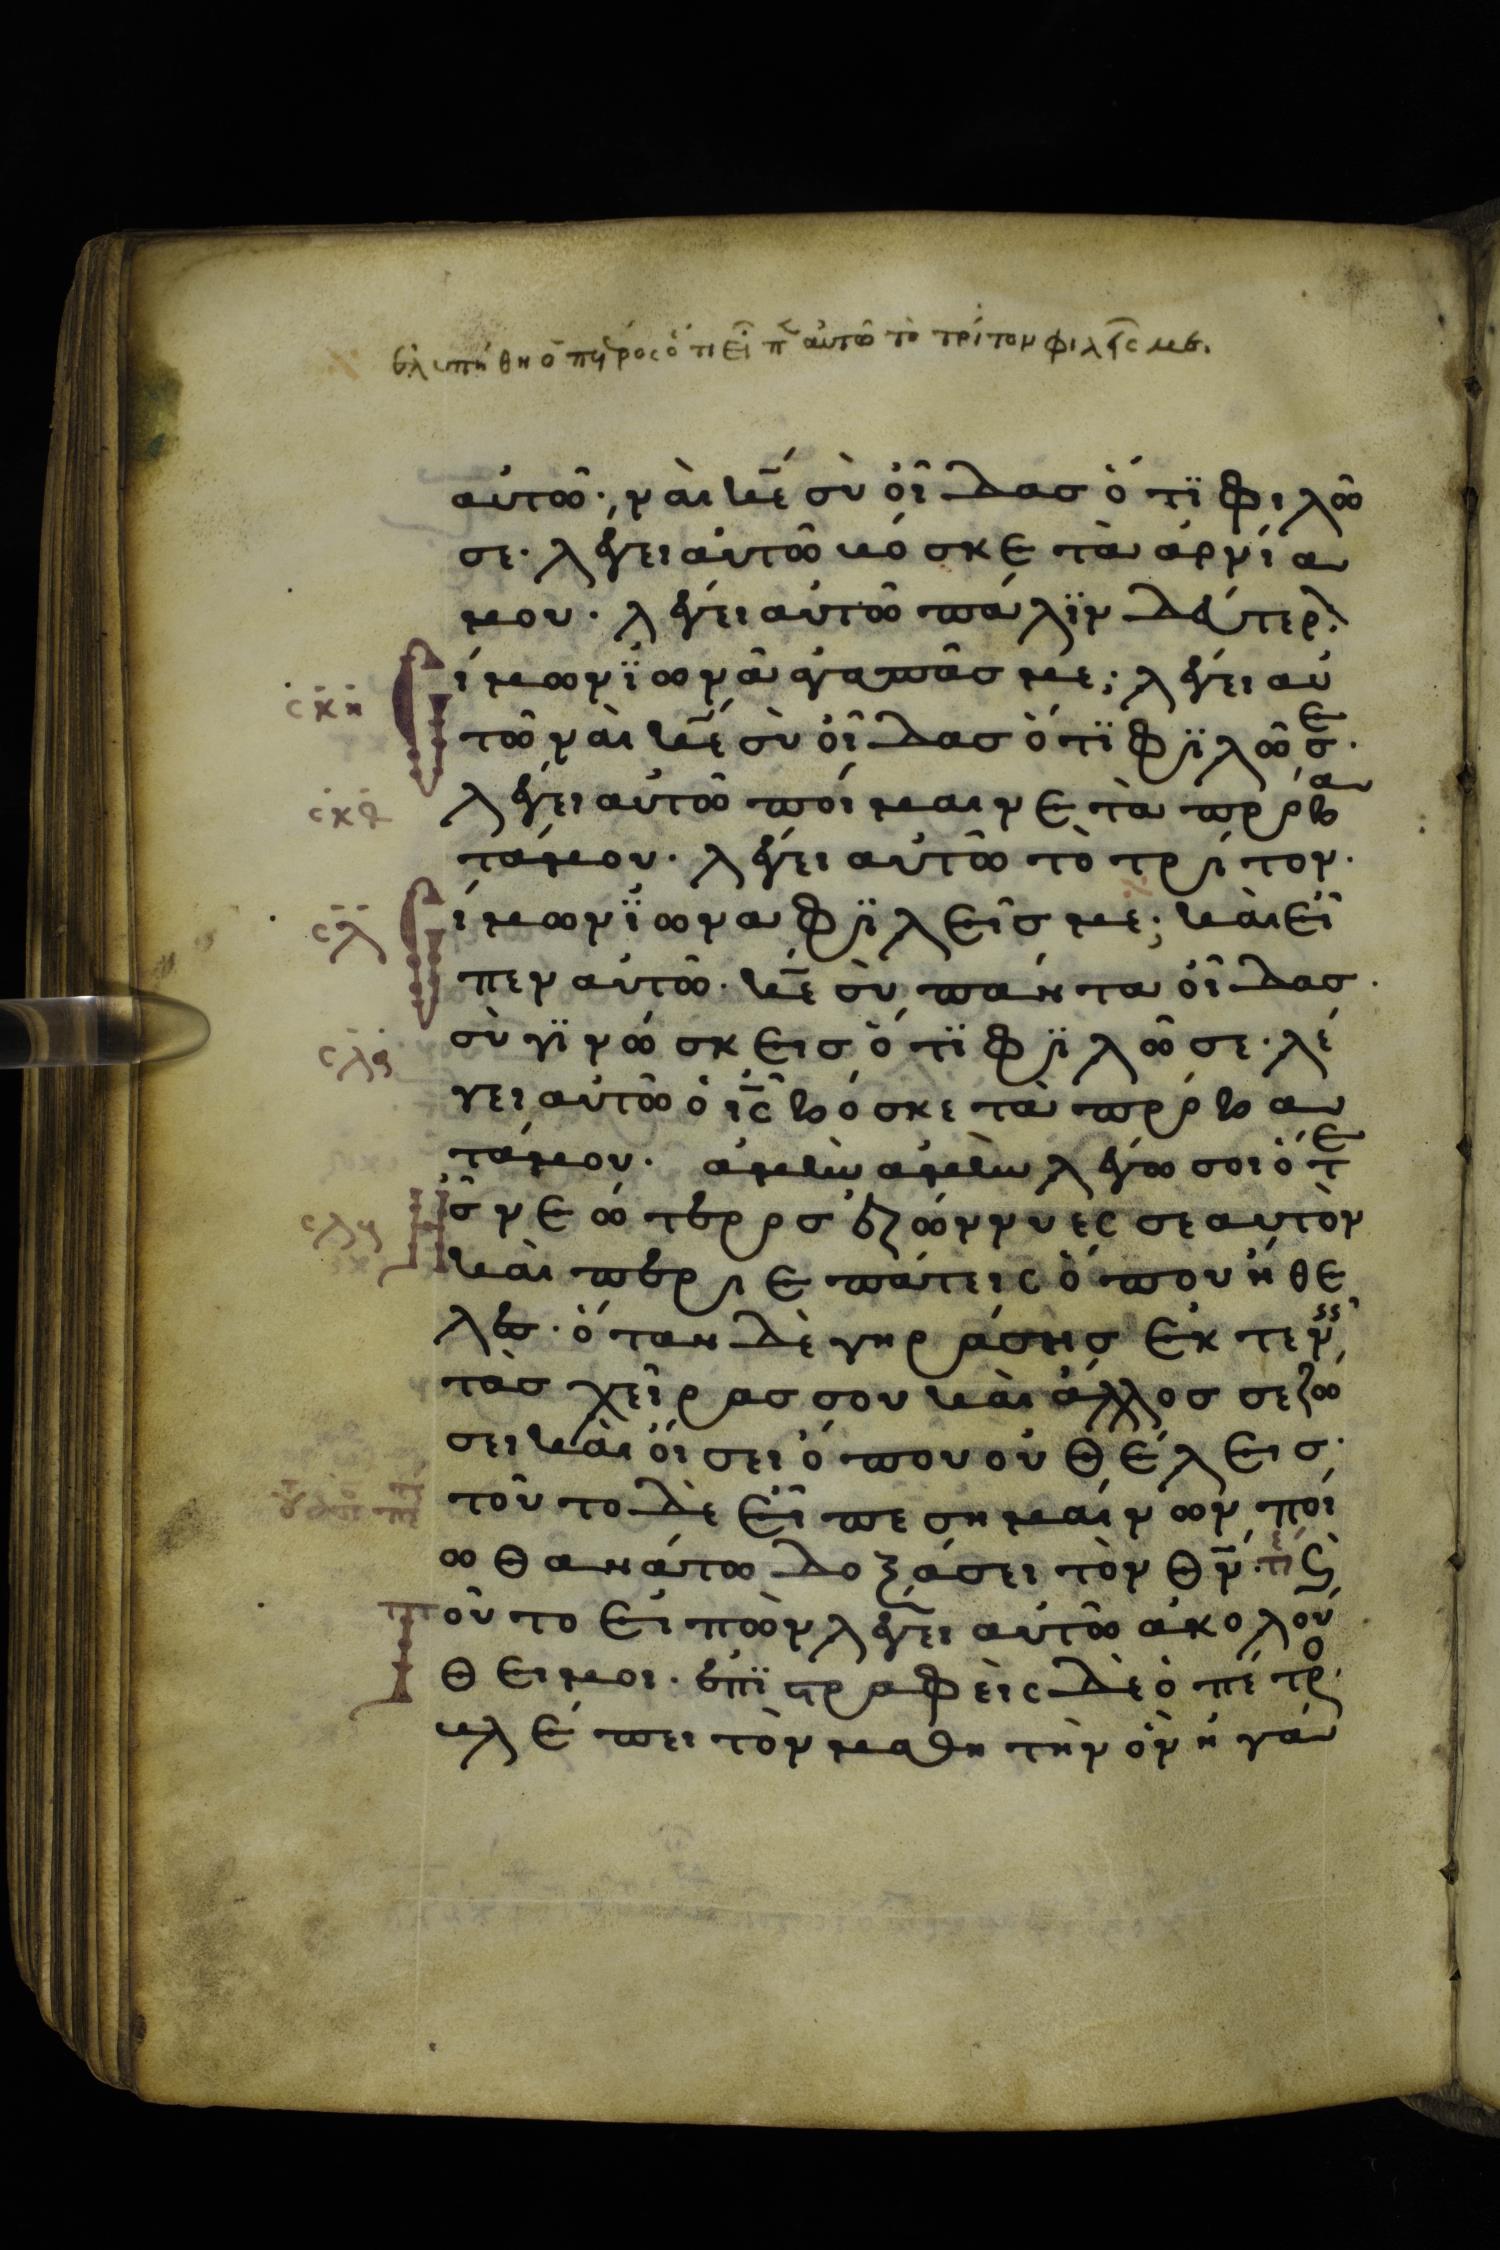 ἐλυπήθη ὁ πέτρος ὅτι εἶπεν αὐτῶ τὸ τρίτον φιλεῖς με.
αὐτῶ· ναὶ κ̅ε̅ σὺ οἶδας ὅτϊ φιλῶ
σε· λέγει αὐτῶ βόσκε τὰ ἀρνία
μου· λέγει αὐτῶ πάλϊν δεύτερ
σκη ίμων ϊωνᾶ ἀγαπᾶσ με; λέγει αὐ
τῶ ναὶ κ̅ε̅ σὺ οἶδας ὅτϊ φϊλῶ σε·
σκθ λέγει αὐτῶ ποίμαινε τὰ πρόβα
τά μου· λέγει αὐτῶ τὸ τρίτον·
σλ Σίμων ϊωνα φϊλεῖσ με; καὶ εἶ
πεν αὐτῶ· κ̅ε̅ σὺ πάντα οἶδας·
σλα σὺ γϊνώσκεισ ὅτϊ φϊλῶ σε· λέ
γει αὐτῶ ὁ ι̅ς̅ βόσκε τὰ πρόβα
τά μου· ἀμὴν ἀμὴν λέγω σοι ὅτε
ἦς νεώτεροσ ἐζώννυες σεαυτὸν
καὶ περιεπάτεις ὅπου ἤθε
λες· ὅταν δὲ γηράσησ ἐκτενεῖς
τὰσ χεῖρας σου καὶ ἄλλοσ σε ζώ
σει καὶ οἴσει ὅπου οὐ θέλεισ·
τοῦτο δὲ εἶπε σημαίνων ποί
ω θανάτω δοξάσει τὸν θ̅ν̅·
τοῦτο εἰπὼν λέγει αὐτῶ ἀκολού
θει μοι· ἐπϊστραφεὶς δὲ ὁ πέτρο
βλέπει τὸν μαθητὴν ὃν ἠγά